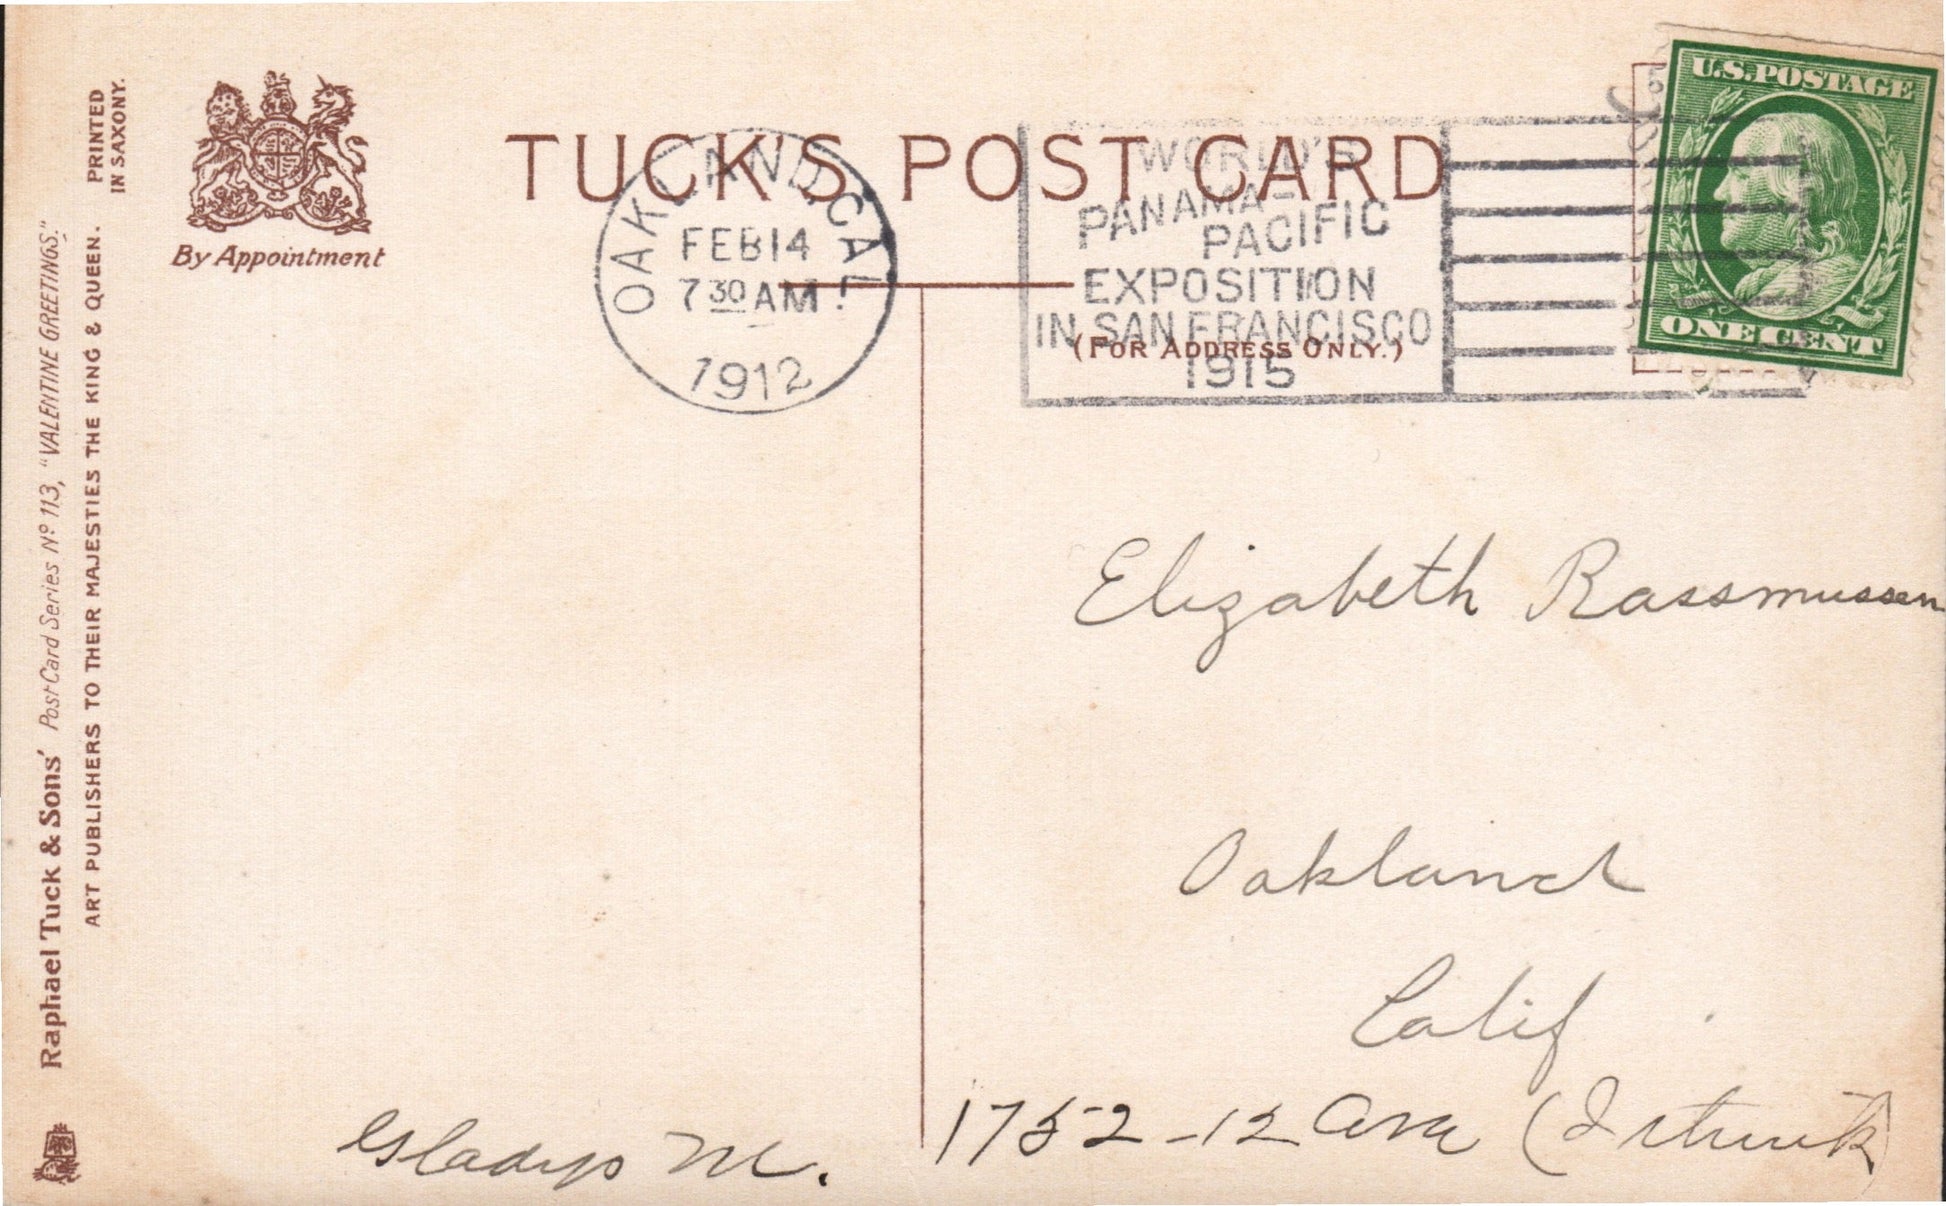 PRINTED
IN SAXONY.
Raphael Tuck & Sons' Post Card Series Nº 113, "VALENTINE GREETINGS."
ART PUBLISHERS TO THEIR MAJESTIES THE KING & QUEEN.
By Appointment
TUCK'S POST CARD
OAKLAND, CAL.
FEB 14
7 30 AM
1912
WORLD'S
PANAMA-
PACIFIC
EXPOSITION
IN SAN FRANCISCO
1915
(FOR ADDRESS ONLY.)
U.S. POSTAGE
ONE CENT
Elizabeth Rassmussen
Oakland
Calif.
1752-12 Ave (I think)
Gladys M.